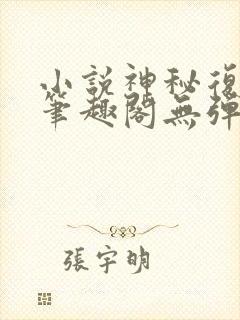 小說神秘復
筆趣閣無彈
張宇明